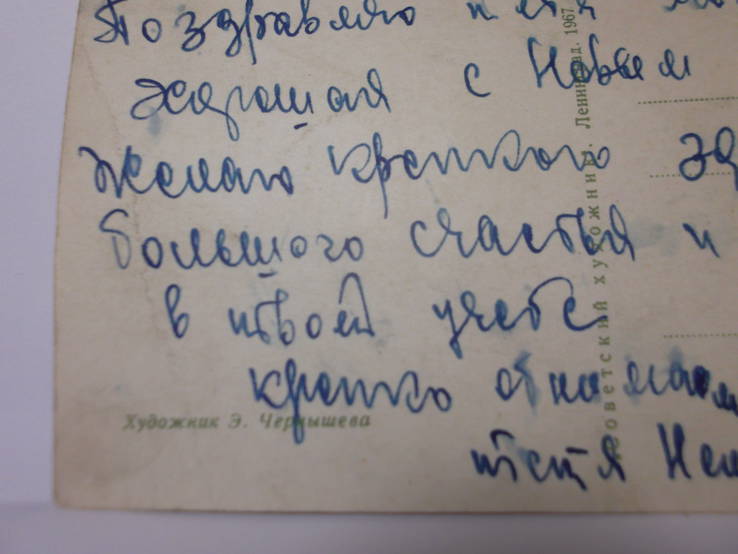 Поздравляю тебя мо
хорошая с Новым
желаю крепкого зд
большого счастья и
в твоей учебе
крепко обнимаем
тетя Нел
Художник Э. Чернышева
Советский художник. Ленинград. 1967